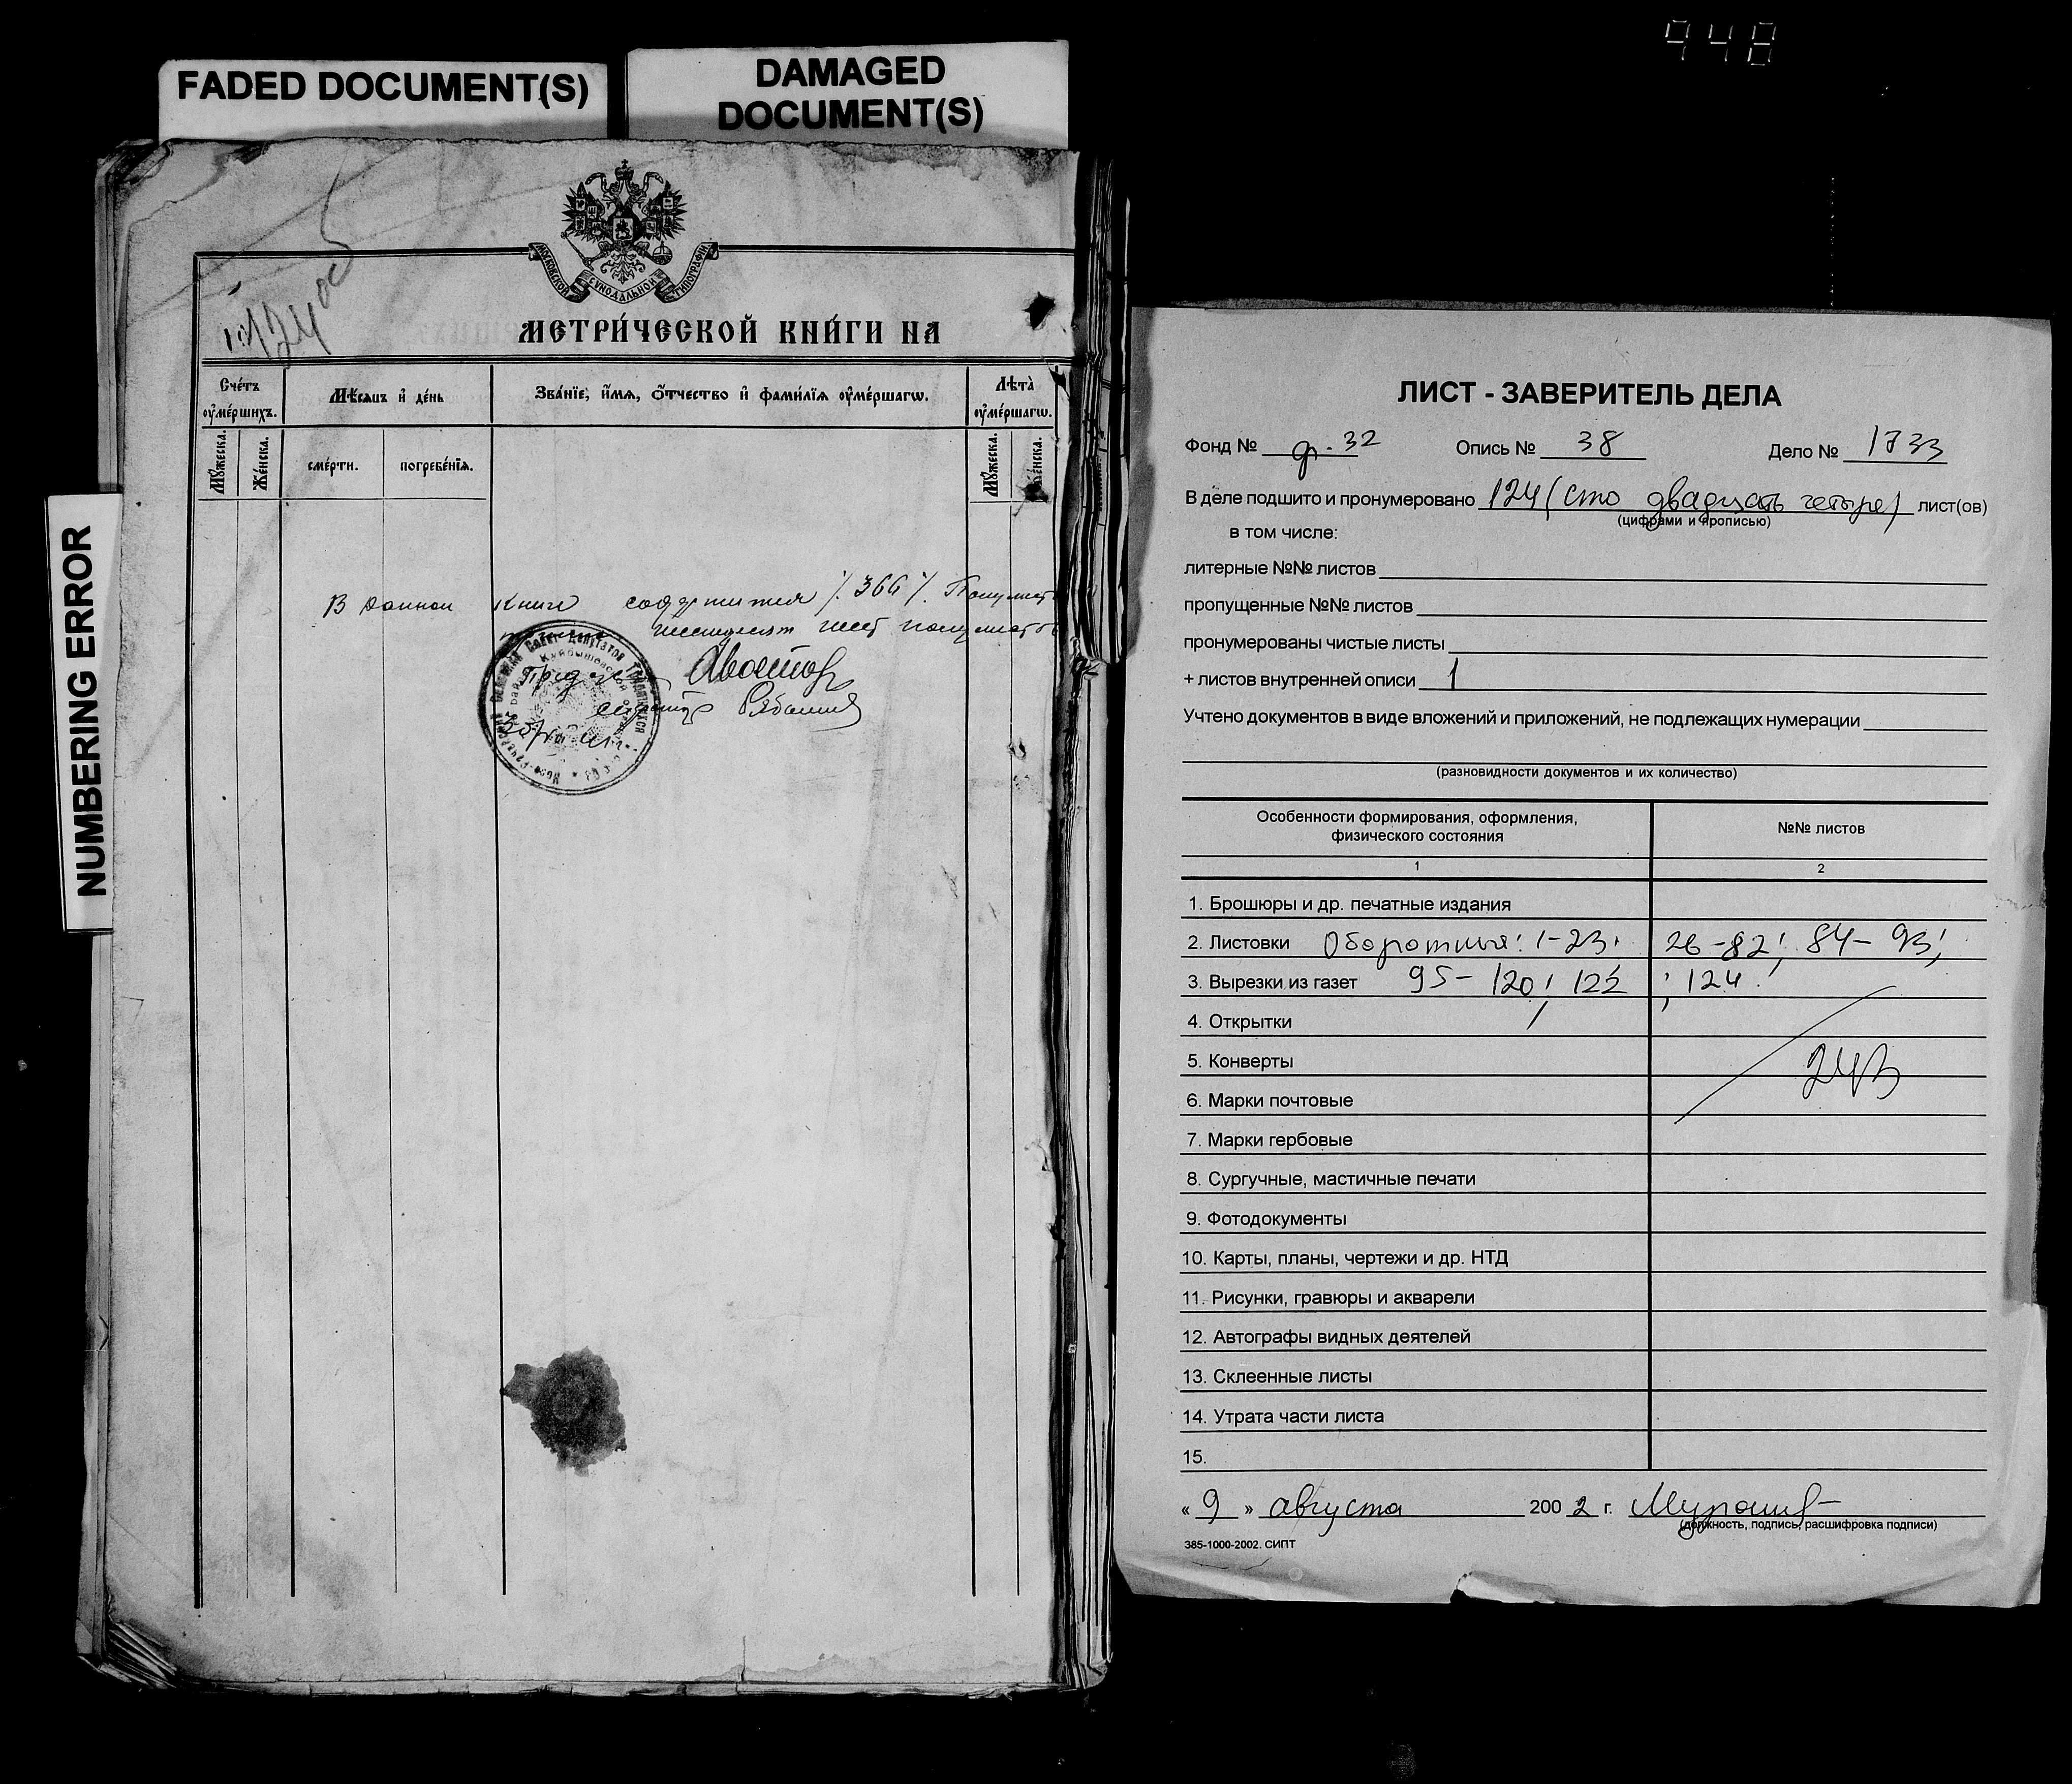 948
FADED DOCUMENT(S)
DAMAGED
DOCUMENT(S)
NUMBERING ERROR
МОСКОВСКОЙ СѴНОДАЛЬНОЙ ТИПОГРАФИИ
124 об
МЕТРИ́ЧЕСКОЙ КНИ́ГИ НА
Сче́тъ ᲂу҆ме́ршихъ.
Мѣ́сяцъ и҆ де́нь
Зва́нїе, и҆́мѧ, ѻ҆́тчество и҆ фами́лїѧ ᲂу҆ме́ршагѡ.
Лѣта̀ ᲂу҆ме́ршагѡ.
Мꙋ́жеска.
Же́нска.
сме́рти.
погребе́нїѧ.
Мꙋ́жеска.
Же́нска.
В данной книге 366
шест
ЛИСТ - ЗАВЕРИТЕЛЬ ДЕЛА
Фонд № ф. 32 Опись № 38 Дело № 1733
В деле подшито и пронумеровано 124 (сто двадцать четыре) лист(ов)
(цифрами и прописью)
в том числе:
литерные №№ листов
пропущенные №№ листов
пронумерованы чистые листы
+ листов внутренней описи 1
Учтено документов в виде вложений и приложений, не подлежащих нумерации
(разновидности документов и их количество)
Особенности формирования, оформления,
физического состояния
№№ листов
1 2
1. Брошюры и др. печатные издания
2. Листовки Оборотные: 1-23; 26-82; 84-93;
3. Вырезки из газет 95-120; 122; 124.
4. Открытки
5. Конверты
243
6. Марки почтовые
7. Марки гербовые
8. Сургучные, мастичные печати
9. Фотодокументы
10. Карты, планы, чертежи и др. НТД
11. Рисунки, гравюры и акварели
12. Автографы видных деятелей
13. Склеенные листы
14. Утрата части листа
15.
« 9 » августа 2002 г.
(должность, подпись, расшифровка подписи)
385-1000-2002. СИПТ